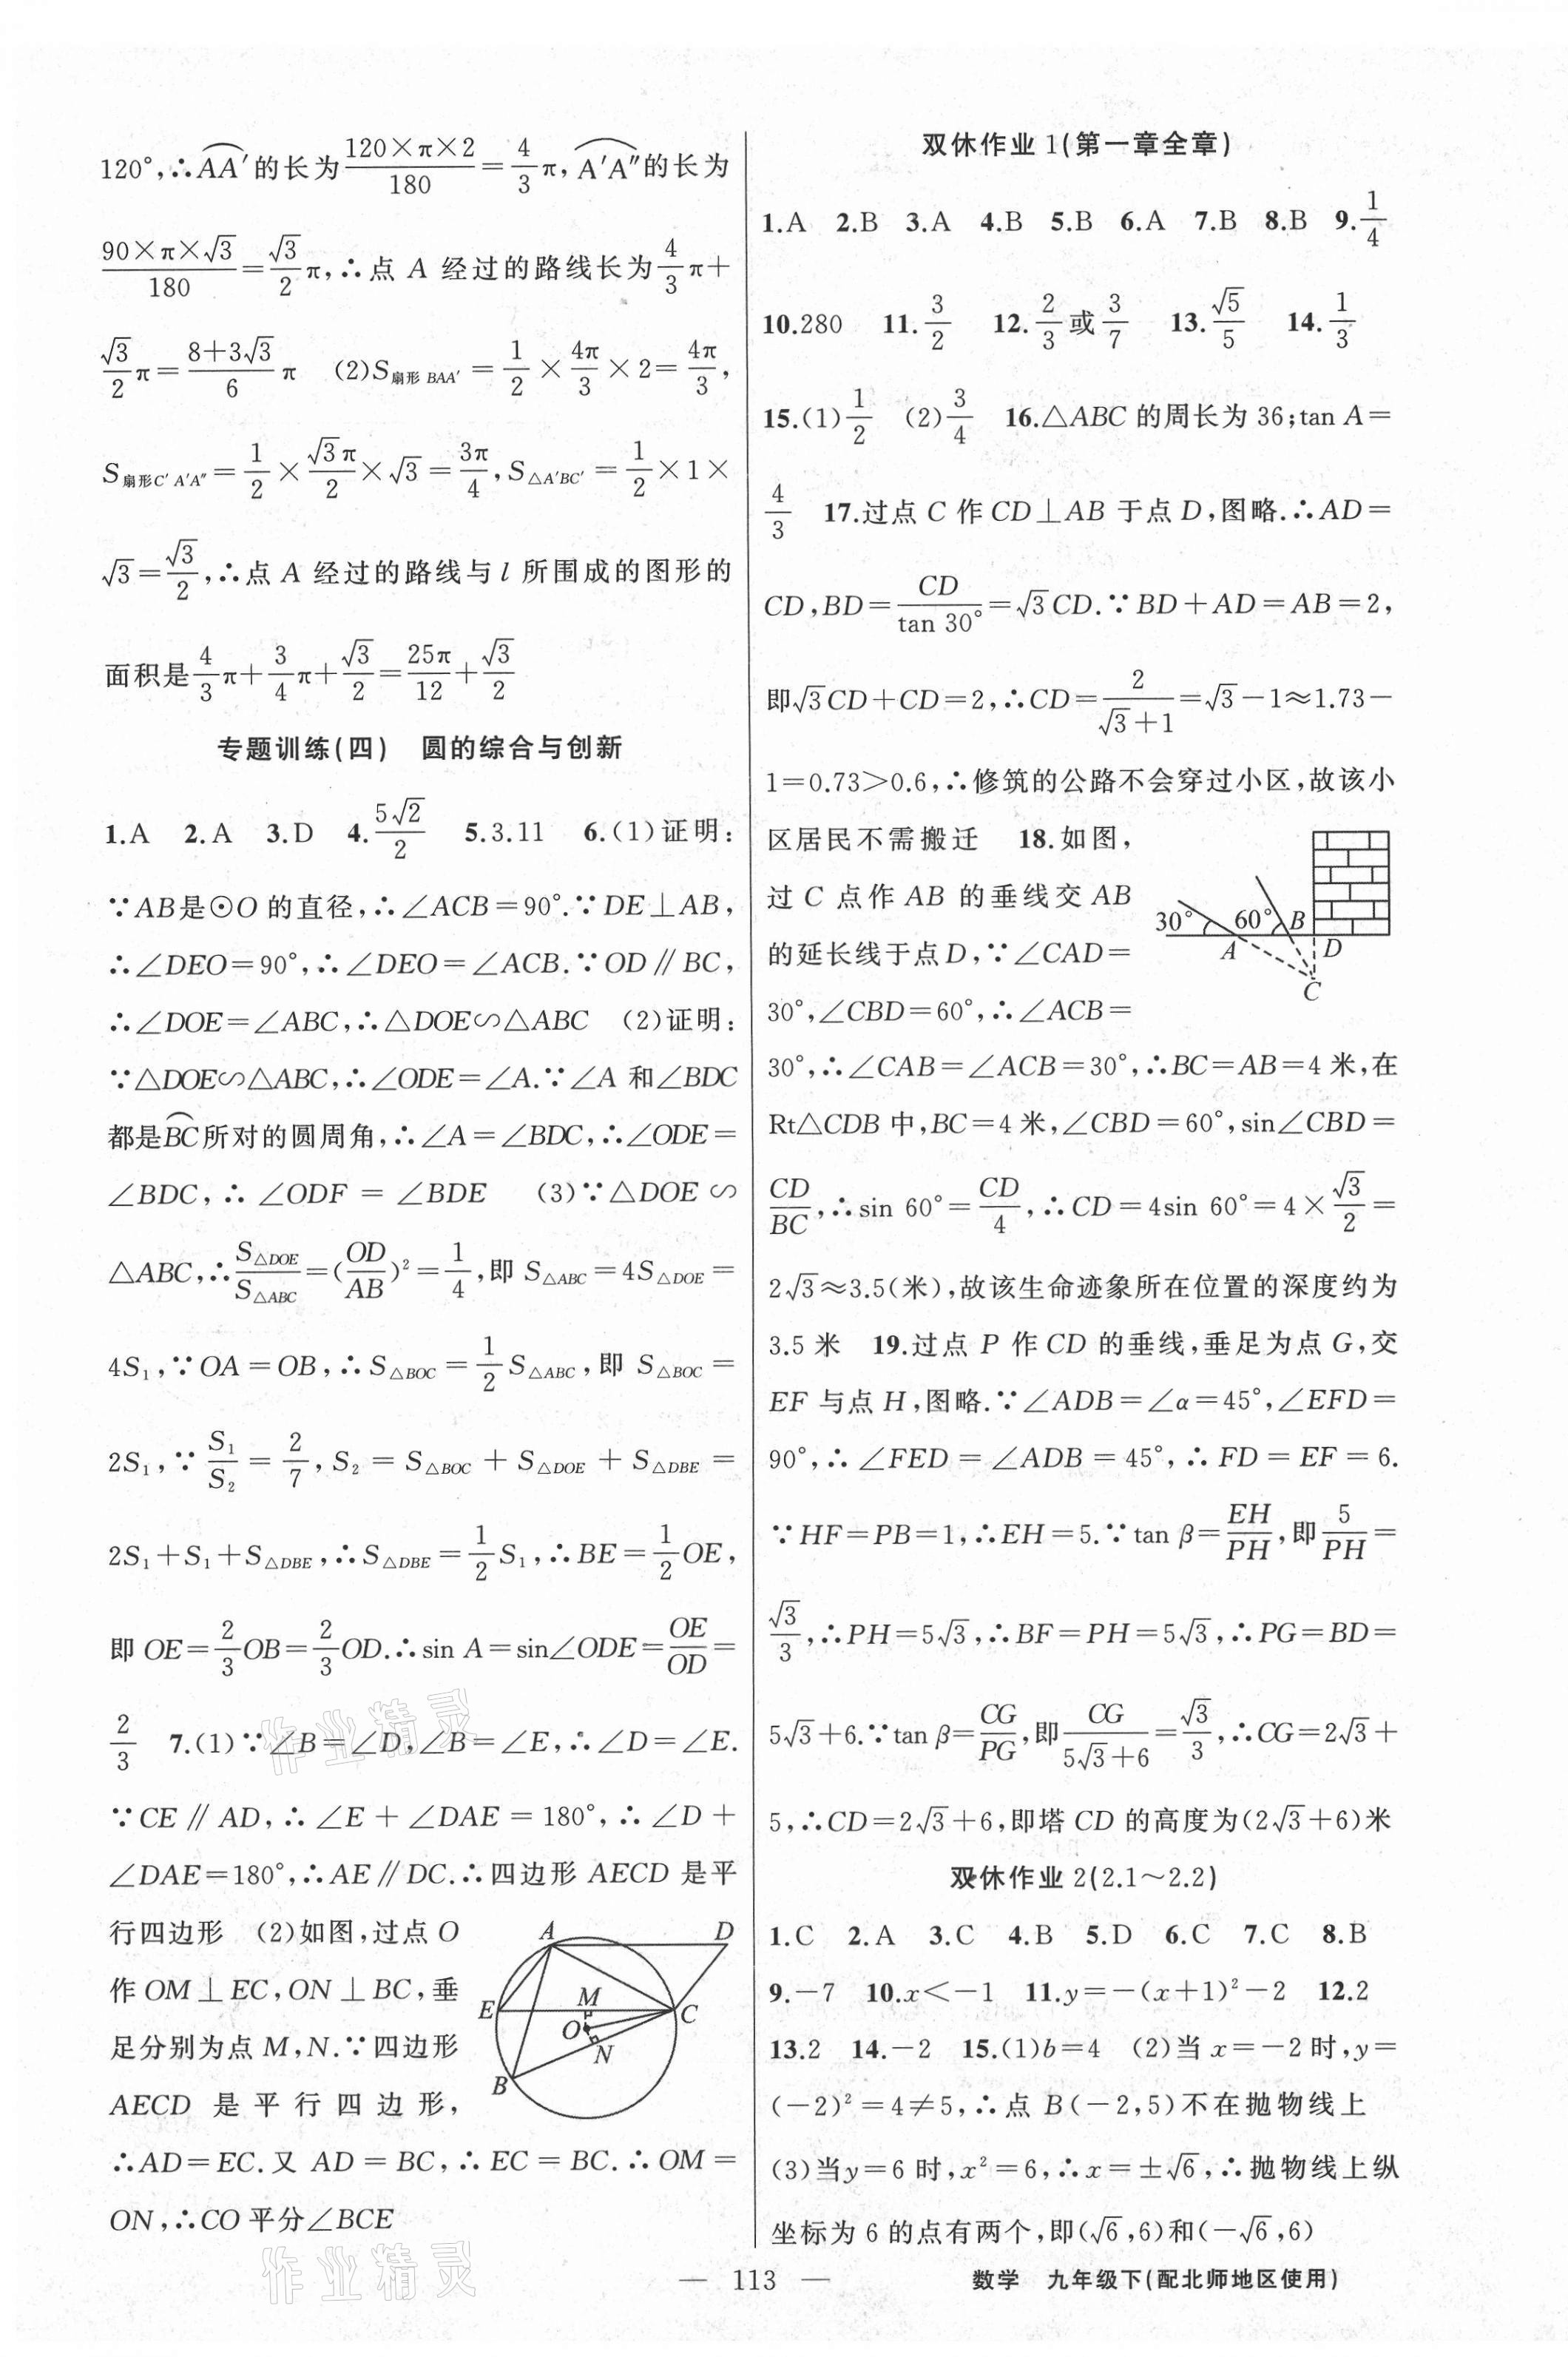 120°,∴AA′的长为120×π×2/180=4/3π,A′A″的长为
90×π×√3/180=√3/2π,∴点 A 经过的路线长为4/3π+
√3/2π=(8+3√3)/6π (2)S扇形 BAA′=1/2×4π/3×2=4π/3,
S扇形C′A′A″=1/2×√3π/2×√3=3π/4,S△A′BC′=1/2×1×
√3=√3/2,∴点 A 经过的路线与 l 所围成的图形的
面积是4/3π+3/4π+√3/2=25π/12+√3/2
专题训练(四) 圆的综合与创新
1.A 2.A 3.D 4.5√2/2 5.3.11 6.(1)证明:
∵AB是⊙O 的直径,∴∠ACB=90°.∵DE⊥AB,
∴∠DEO=90°,∴∠DEO=∠ACB.∵OD∥BC,
∴∠DOE=∠ABC,∴△DOE∽△ABC (2)证明:
∵△DOE∽△ABC,∴∠ODE=∠A.∵∠A 和∠BDC
都是BC所对的圆周角,∴∠A=∠BDC,∴∠ODE=
∠BDC,∴∠ODF=∠BDE (3)∵△DOE∽
△ABC,∴S△DOE/S△ABC=(OD/AB)²=1/4,即 S△ABC=4S△DOE=
4S₁,∵OA=OB,∴S△BOC=1/2S△ABC,即 S△BOC=
2S₁,∵S₁/S₂=2/7,S₂=S△BOC+S△DOE+S△DBE=
2S₁+S₁+S△DBE,∴S△DBE=1/2S₁,∴BE=1/2OE,
即 OE=2/3OB=2/3OD.∴sin A=sin∠ODE=OE/OD=
2/3 7.(1)∵∠B=∠D,∠B=∠E,∴∠D=∠E.
∵CE∥AD,∴∠E+∠DAE=180°,∴∠D+
∠DAE=180°,∴AE∥DC.∴四边形 AECD 是平
行四边形 (2)如图,过点 O
作 OM⊥EC,ON⊥BC,垂
足分别为点 M,N.∵四边形
AECD 是平行四边形,
∴AD=EC.又 AD=BC,∴EC=BC.∴OM=
ON,∴CO 平分∠BCE
A
D
E
M
C
O
N
B
双休作业 1(第一章全章)
1.A 2.B 3.A 4.B 5.B 6.A 7.B 8.B 9.1/4
10.280 11.3/2 12.2/3或3/7 13.√5/5 14.1/3
15.(1)1/2 (2)3/4 16.△ABC 的周长为 36;tan A=
4/3 17.过点 C 作 CD⊥AB 于点 D,图略.∴AD=
CD,BD=CD/tan 30°=√3CD.∵BD+AD=AB=2,
即√3CD+CD=2,∴CD=2/(√3+1)=√3-1≈1.73-
1=0.73>0.6,∴修筑的公路不会穿过小区,故该小
区居民不需搬迁 18.如图,
过 C 点作 AB 的垂线交 AB
的延长线于点 D,∵∠CAD=
30°,∠CBD=60°,∴∠ACB=
30°
60°
B
A
D
C
30°,∴∠CAB=∠ACB=30°,∴BC=AB=4 米,在
Rt△CDB 中,BC=4 米,∠CBD=60°,sin∠CBD=
CD/BC,∴sin 60°=CD/4,∴CD=4sin 60°=4×√3/2=
2√3≈3.5(米),故该生命迹象所在位置的深度约为
3.5 米 19.过点 P 作 CD 的垂线,垂足为点 G,交
EF 与点 H,图略.∵∠ADB=∠α=45°,∠EFD=
90°,∴∠FED=∠ADB=45°,∴FD=EF=6.
∵HF=PB=1,∴EH=5.∵tan β=EH/PH,即5/PH=
√3/3,∴PH=5√3,∴BF=PH=5√3,∴PG=BD=
5√3+6.∵tan β=CG/PG,即CG/(5√3+6)=√3/3,∴CG=2√3+
5,∴CD=2√3+6,即塔 CD 的高度为(2√3+6)米
双休作业 2(2.1~2.2)
1.C 2.A 3.C 4.B 5.D 6.C 7.C 8.B
9.-7 10.x<-1 11.y=-(x+1)²-2 12.2
13.2 14.-2 15.(1)b=4 (2)当 x=-2 时,y=
(-2)²=4≠5,∴点 B(-2,5)不在抛物线上
(3)当y=6 时,x²=6,∴x=±√6,∴抛物线上纵
坐标为 6 的点有两个,即(√6,6)和(-√6,6)
作业精灵
作业精灵
— 113 —
数学 九年级下(配北师地区使用)